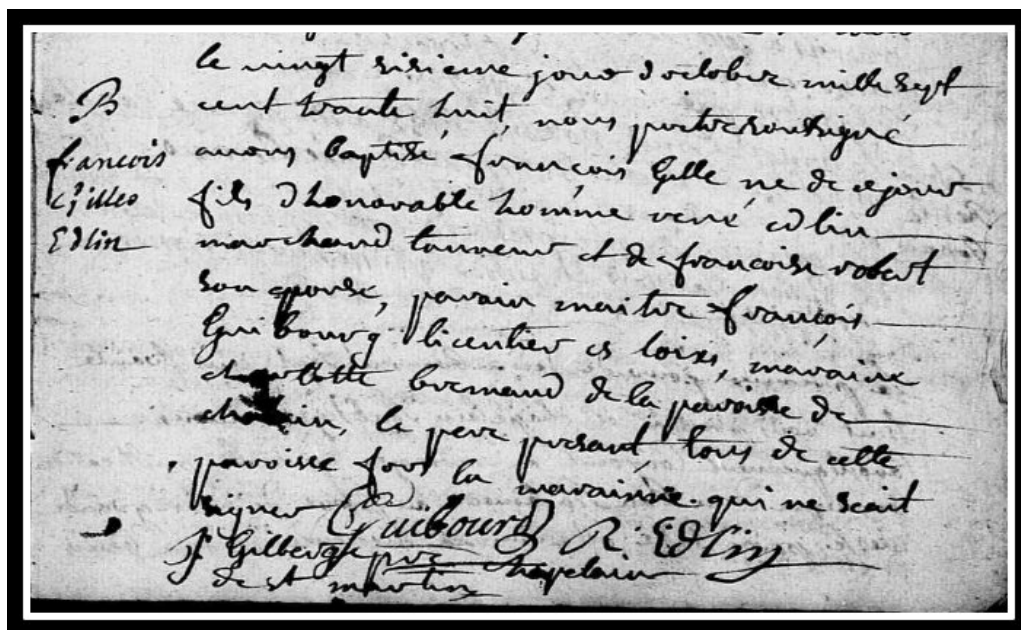 B
francois
Gilles
Edlin
le vingt sixieme jour d'octobre mille sept
cent trante huit, nous prêtre soussigné
avons baptisé françois Gille né de ce jour
fils d'honorable homme rené edlin
marchand tanneur et de françoise robert
son epouse, parain maitre françois
Guibourg licentier es loix, maraine
charlotte bremaud de la paroisse de
le pere présant tous de cette
paroisse fors la maraine qui ne scait
signer Guibourg R. Edlin
J Gilberge ptre chapelain
de st martin